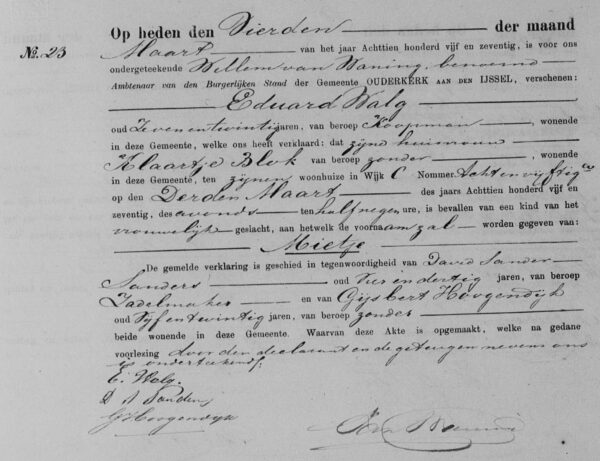 Op heden den Vierden der maand
No. 23 Maart van het jaar Achttien honderd vijf en zeventig, is voor ons
ondergeteekende Willem van Waning, benoemd
Ambtenaar van den Burgerlijken Stand der Gemeente OUDERKERK AAN DEN IJSSEL, verschenen:
Eduard Walg
oud Zeven en twintig jaren, van beroep Koopman, wonende
in deze Gemeente, welke ons heeft verklaard: dat zijne huisvrouw
Klaartje Blok van beroep zonder, wonende
in deze Gemeente, ten zijnen woonhuize in Wijk C Nommer Acht en vijftig
op den Derden Maart des jaars Achttien honderd vijf en
zeventig, des avonds ten half negen ure, is bevallen van een kind van het
vrouwelijk geslacht, aan hetwelk de voornaam zal worden gegeven van:
Mietje
De gemelde verklaring is geschied in tegenwoordigheid van David Sander
Sanders oud Vier en dertig jaren, van beroep
Zadelmaker en van Gijsbert Hoogendijk
oud Vyf en twintig jaren, van beroep zonder
beide wonende in deze Gemeente. Waarvan deze Akte is opgemaakt, welke na gedane
voorlezing door den declarant en de getuigen nevens ons
is onderteekend.
E. Walg.
D S Sanders
G Hoogendijk